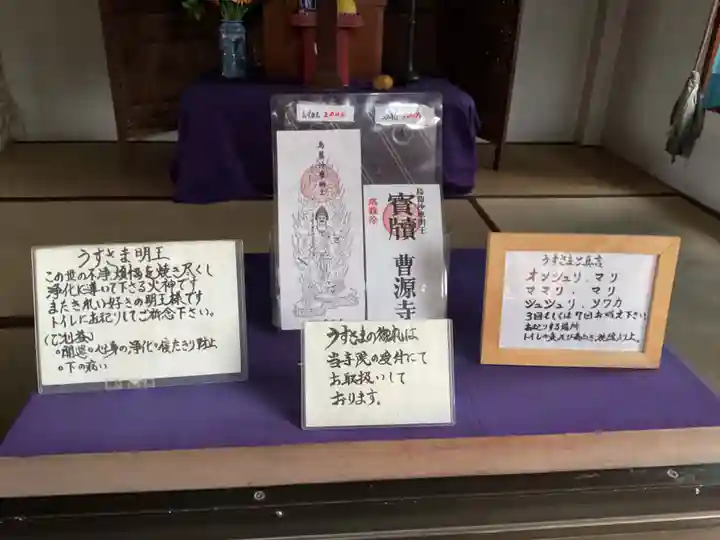 うすさま明王
この世の不浄煩悩を焼き尽くし
浄化に導いて下さる火神です
またきれい好きの明王様です
トイレにお祀りしてご祈念下さい。
(ご利益)
○開運○心身の浄化○寝たきり防止
○下の病い
烏蒭沙摩明王
烏蒭沙摩明王
寳牘 曹源寺
うすさまの御札は
当寺院の受付にて
お取扱いして
おります。
うすさまご真言
オンシュリ.マリ
ママリ.マリ
シュシュリ.ソワカ
3回もしくは7回お唱え下さい
お祀りする場所
トイレの